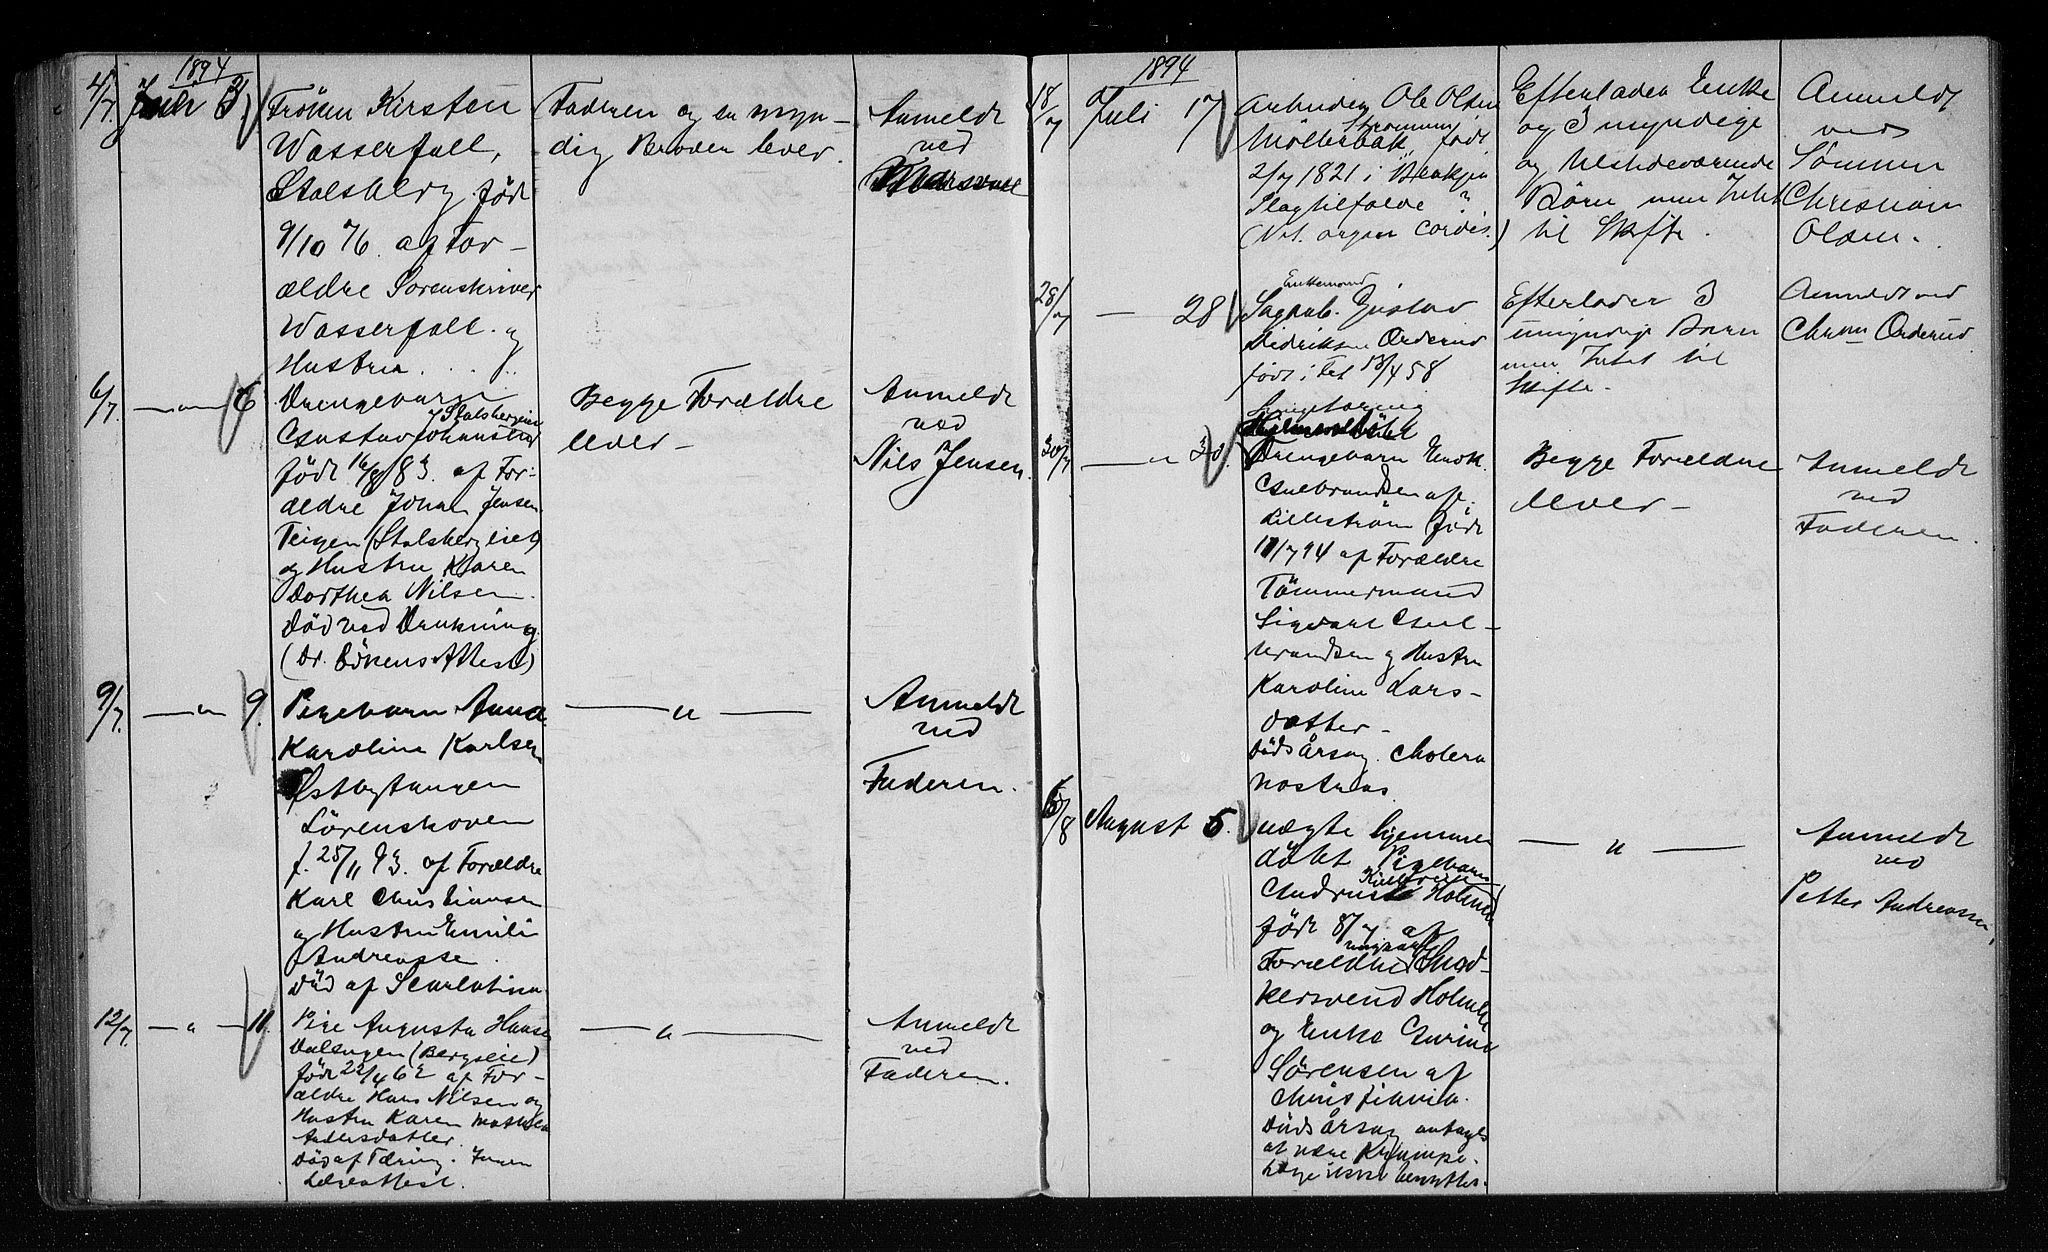 1894
4/7 Juli 3
Frøken Kirsten
Wasserfall,
Stalsberg født
9/10 76 af For-
ældre Sorenskriver
Wasserfall og
Hustru
Faderen og en myn-
dig Broder lever.
Anmeldt
ved
6/7 — " — 6
Drengebarn
Gustav Johansen
Stalsbergeiet
født 16/8 83. af For-
ældre Johan Jensen
Teigen (Stalsbergeiet)
og Hustru Karen
Dorthea Nilsen.
Død ved Drukning
(Dr. Attest)
Begge Forældre
lever —
Anmeldt
ved
Nils Jensen.
9/7 — " — 9.
Pigebarn Anna
Karoline Karlsen
Østbytangen
Lörenskoven
f. 25/11 93. af Forældre
Karl Christiansen
og Hustru Emili
Andreasse
Död af Scarlatina
— " —
Anmeldt
ved
Faderen.
12/7 — " — 11.
Pige Augusta Hansen
(Bergseie)
født 22/4 62 af For-
ældre Hans Nilsen og
Hustru Karen Mathilda
Andersdatter.
Död af Tæring. Ingen
Lægeattest.
— " —
Anmeldt
ved
Faderen.
1894
18/7 Juli 17
Arbeider Ole Olsen
Möllerbak Strømmen, født
2/7 1821 i
Slagtilfælde
(Vit. organ Cordis.)
Efterlader Enke
og 3 myndige
og tilstedeværende
Børn men Intet
til Skifte.
Anmeldt
ved
Sønnen
Christian
Olsen.
28/7 — 28
Enkemand
Sagarb. Gustav
Didriksen Orderud
født i Fet 13/4 58
Efterlader 3
umyndige Børn
men Intet til
Skifte.
Anmeldt ved
Chr. Orderud
30/7 — " 30.
Drengebarn Enok
Gulbrandsen af
Lillestrøm født
11/7 94 af Forældre
Tømmermand
Sigvart Gul-
brandsen og Hustru
Karoline Lars-
datter —
Dødsårsag. Cholera
nostras.
Begge Forældre
lever —
Anmeldt
ved
Faderen.
6/8 August 5.
uægte hjemme
döbt Pigebarn
Holmen
født 8/7 af
Forældre
Holmen
og Enke Gurine
Sørensen af
Christiania.
Dödsårsag antages
at være Krampe.
Læge ikke benyttet.
— " —
Anmeldt
ved
Petter Andreassen.